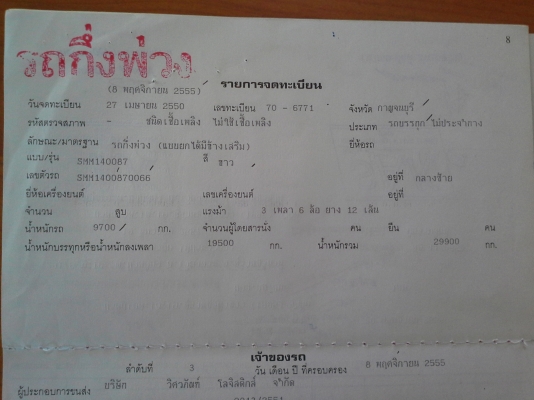 8
รถกึ่งพ่วง
รายการจดทะเบียน
(8 พฤศจิกายน 2555)
วันจดทะเบียน 27 เมษายน 2550 เลขทะเบียน 70 - 6771 จังหวัด กาญจนบุรี
รหัสตรวจสภาพ - ชนิดเชื้อเพลิง ไม่ใช้เชื้อเพลิง ประเภท รถบรรทุก ไม่ประจำทาง
ลักษณะ/มาตรฐาน รถกึ่งพ่วง (แบบยกได้มีข้างเสริม) ยี่ห้อรถ
แบบ/รุ่น SMM140087 สี ขาว
เลขตัวรถ SMM1400870066 อยู่ที่ กลางซ้าย
ยี่ห้อเครื่องยนต์ เลขเครื่องยนต์ อยู่ที่
จำนวน สูบ แรงม้า 3 เพลา 6 ล้อ ยาง 12 เส้น
น้ำหนักรถ 9700 กก. จำนวนผู้โดยสารนั่ง คน ยืน คน
น้ำหนักบรรทุกหรือน้ำหนักลงเพลา 19500 กก. น้ำหนักรวม 29900 กก.
เจ้าของรถ
ลำดับที่ 3 วัน เดือน ปี ที่ครอบครอง 8 พฤศจิกายน 2555
ผู้ประกอบการขนส่ง บริษัท วิศวภัลท์ โลจิสติกส์ จำกัด